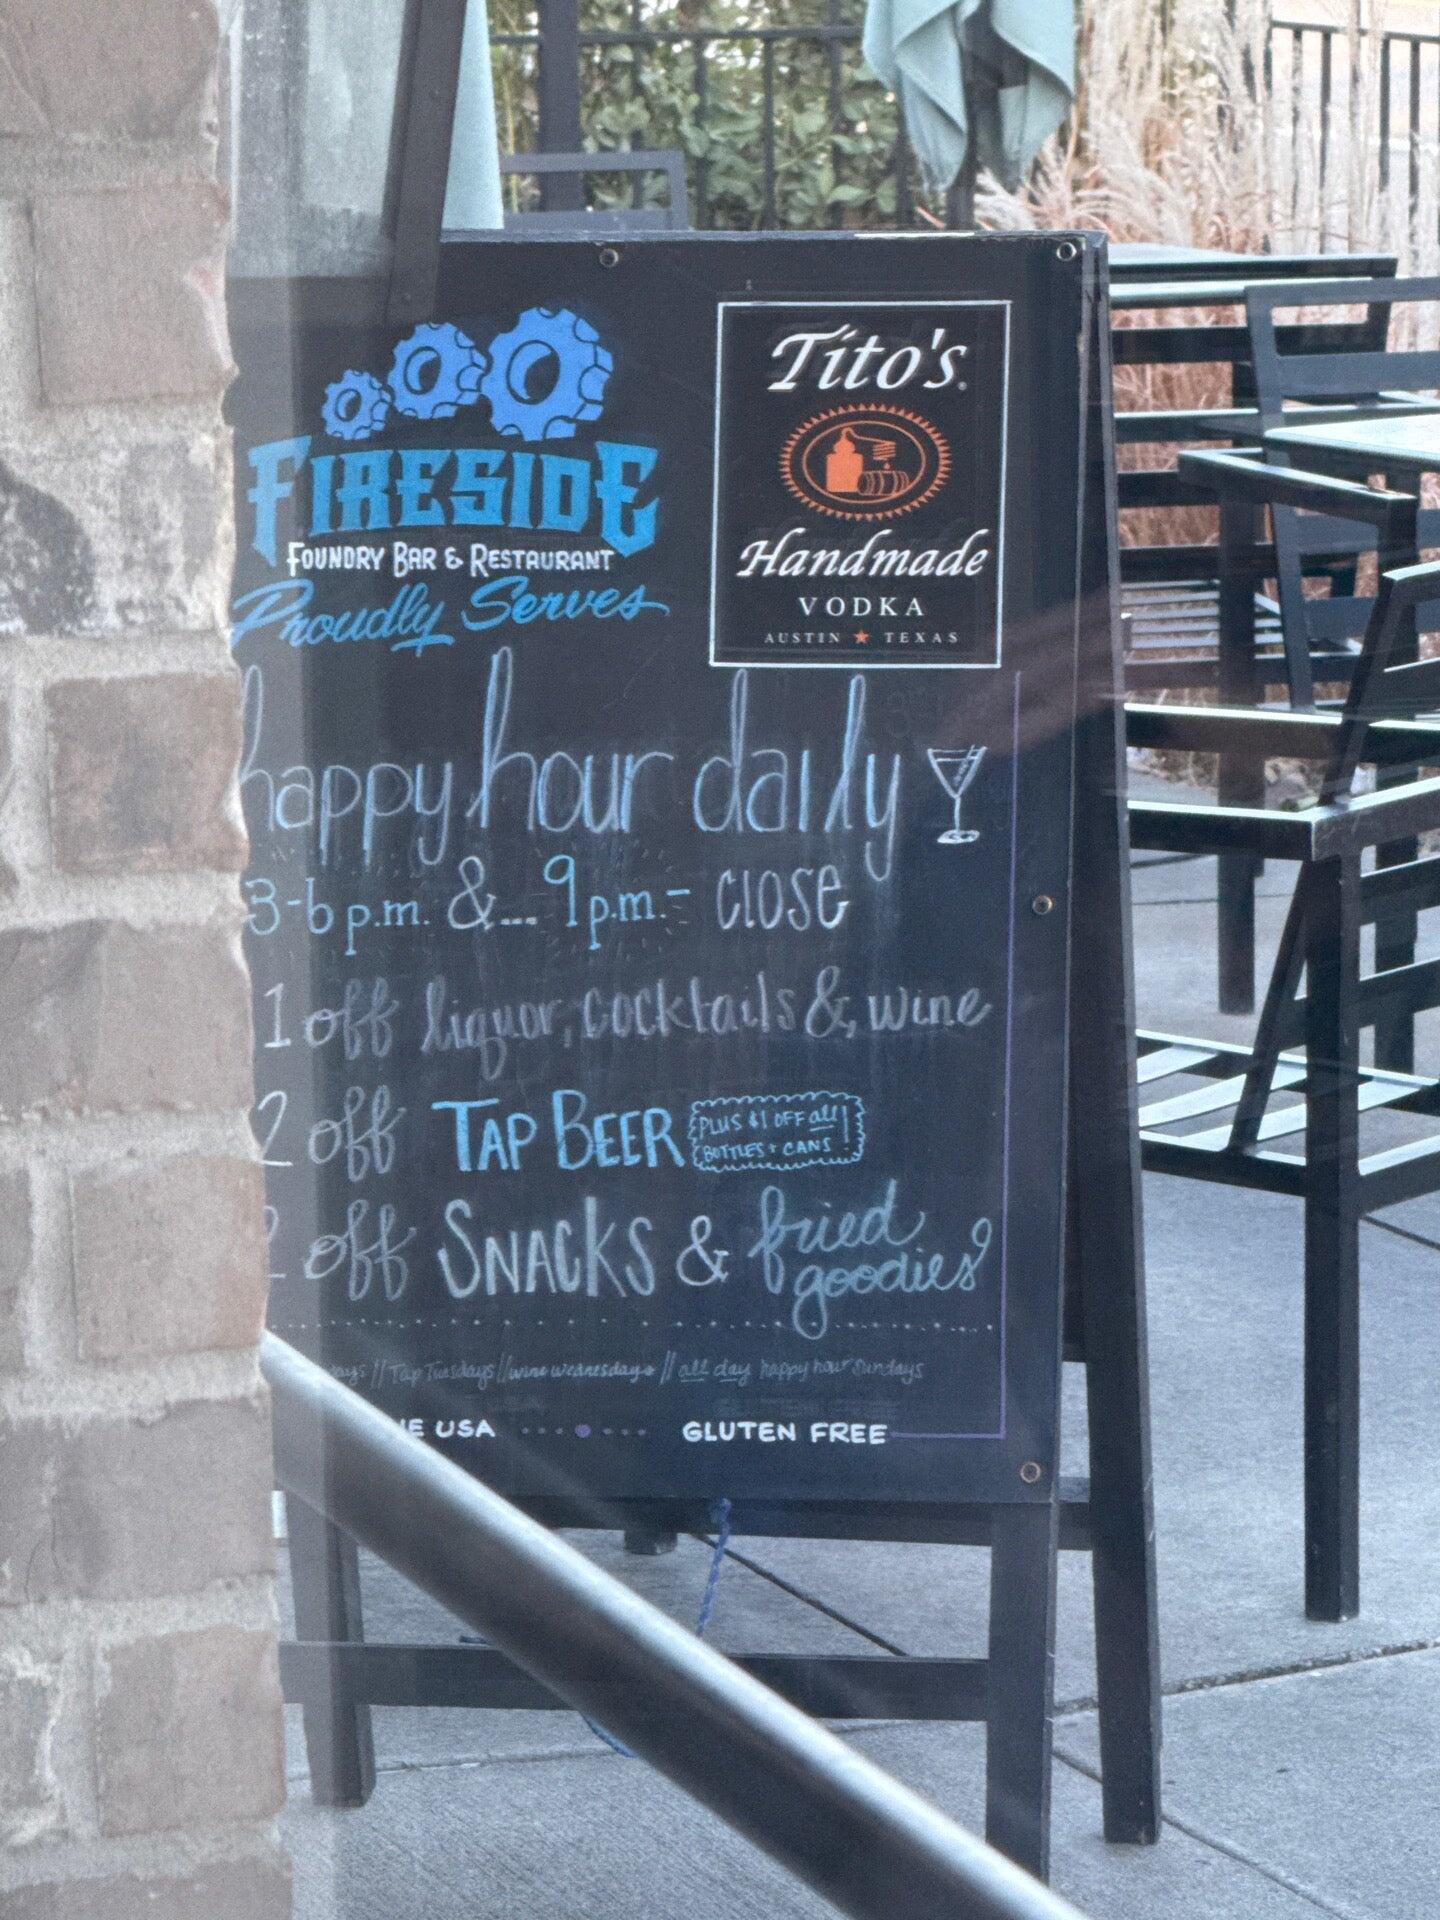 FIRESIDE
FOUNDRY BAR & RESTAURANT
Proudly Serves
Tito's
Handmade
VODKA
AUSTIN ★ TEXAS
happy hour daily
3-6 p.m. &... 9 p.m. - close
1 off liquor, cocktails &, wine
2 off TAP BEER PLUS $1 OFF all! BOTTLES + CANS
off SNACKS & fried goodies
// Tap Tuesdays // wine wednesdays // all day happy hour Sundays
USA GLUTEN FREE